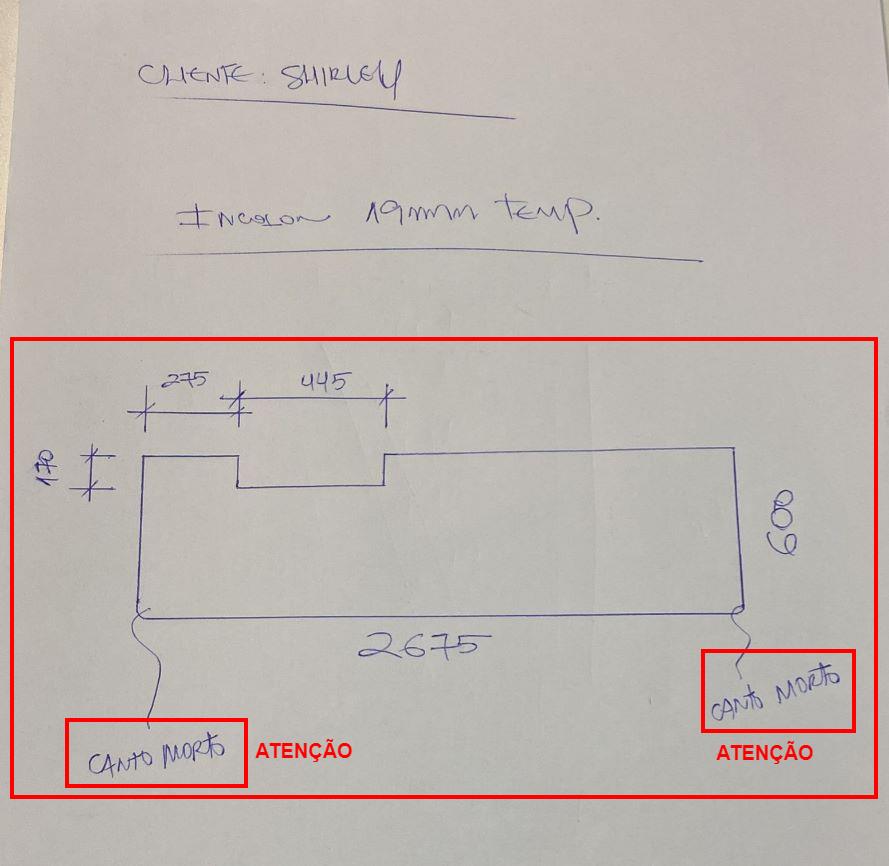 CLIENTE: SHIRLEY
INCOLOR 19mm TEMP.
275
445
170
600
2675
CANTO MORTO
ATENÇÃO
CANTO MORTO
ATENÇÃO